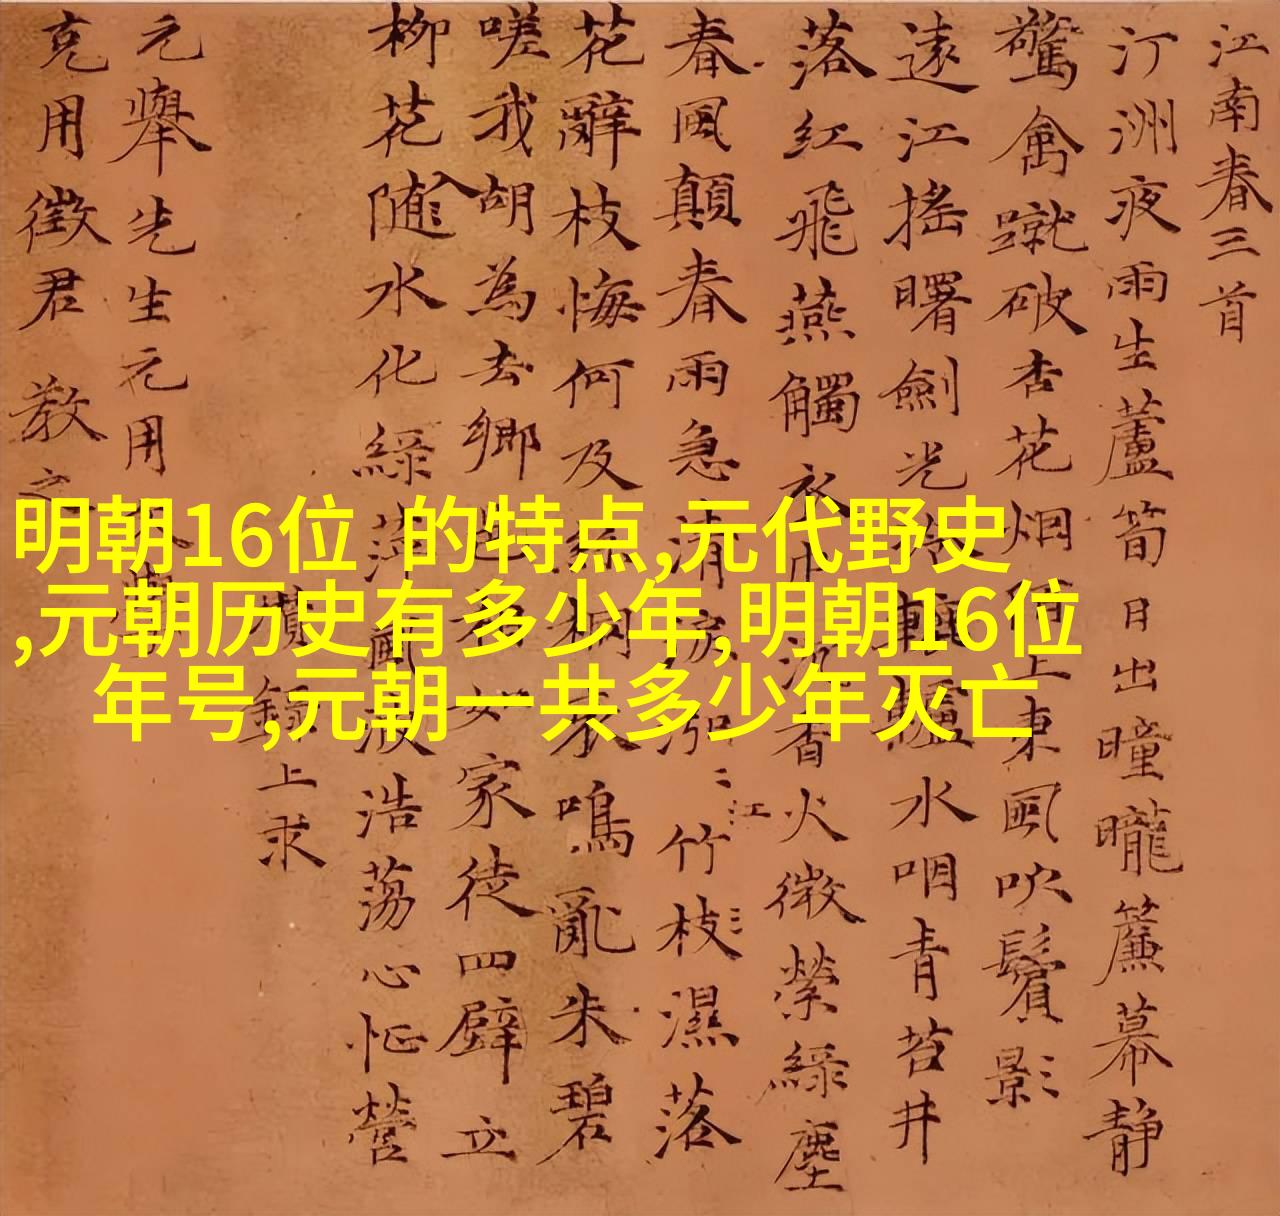 江南春三首
汀洲夜雨生蘆筍日出曈曨簾幕静
驚禽蹴破杏花烟陌上東風吹鬢影
遠江搖曙劍光水咽青苔井
落紅飛燕觸衣巾沉香火微縈綠塵
春風顛春雨急清泓二江竹枝二濕落
花辭枝悔何及絲桐哀鳴亂朱碧
嗟我胡為去鄉如家徒四壁立
柳花隨入水化綠萍風波浩蕩心忙營
瓚錄上求
元舉先生元用文學
克用徵君 教之
明朝16位 的特点,元代野史
,元朝历史有多少年,明朝16位
年号,元朝一共多少年灭亡